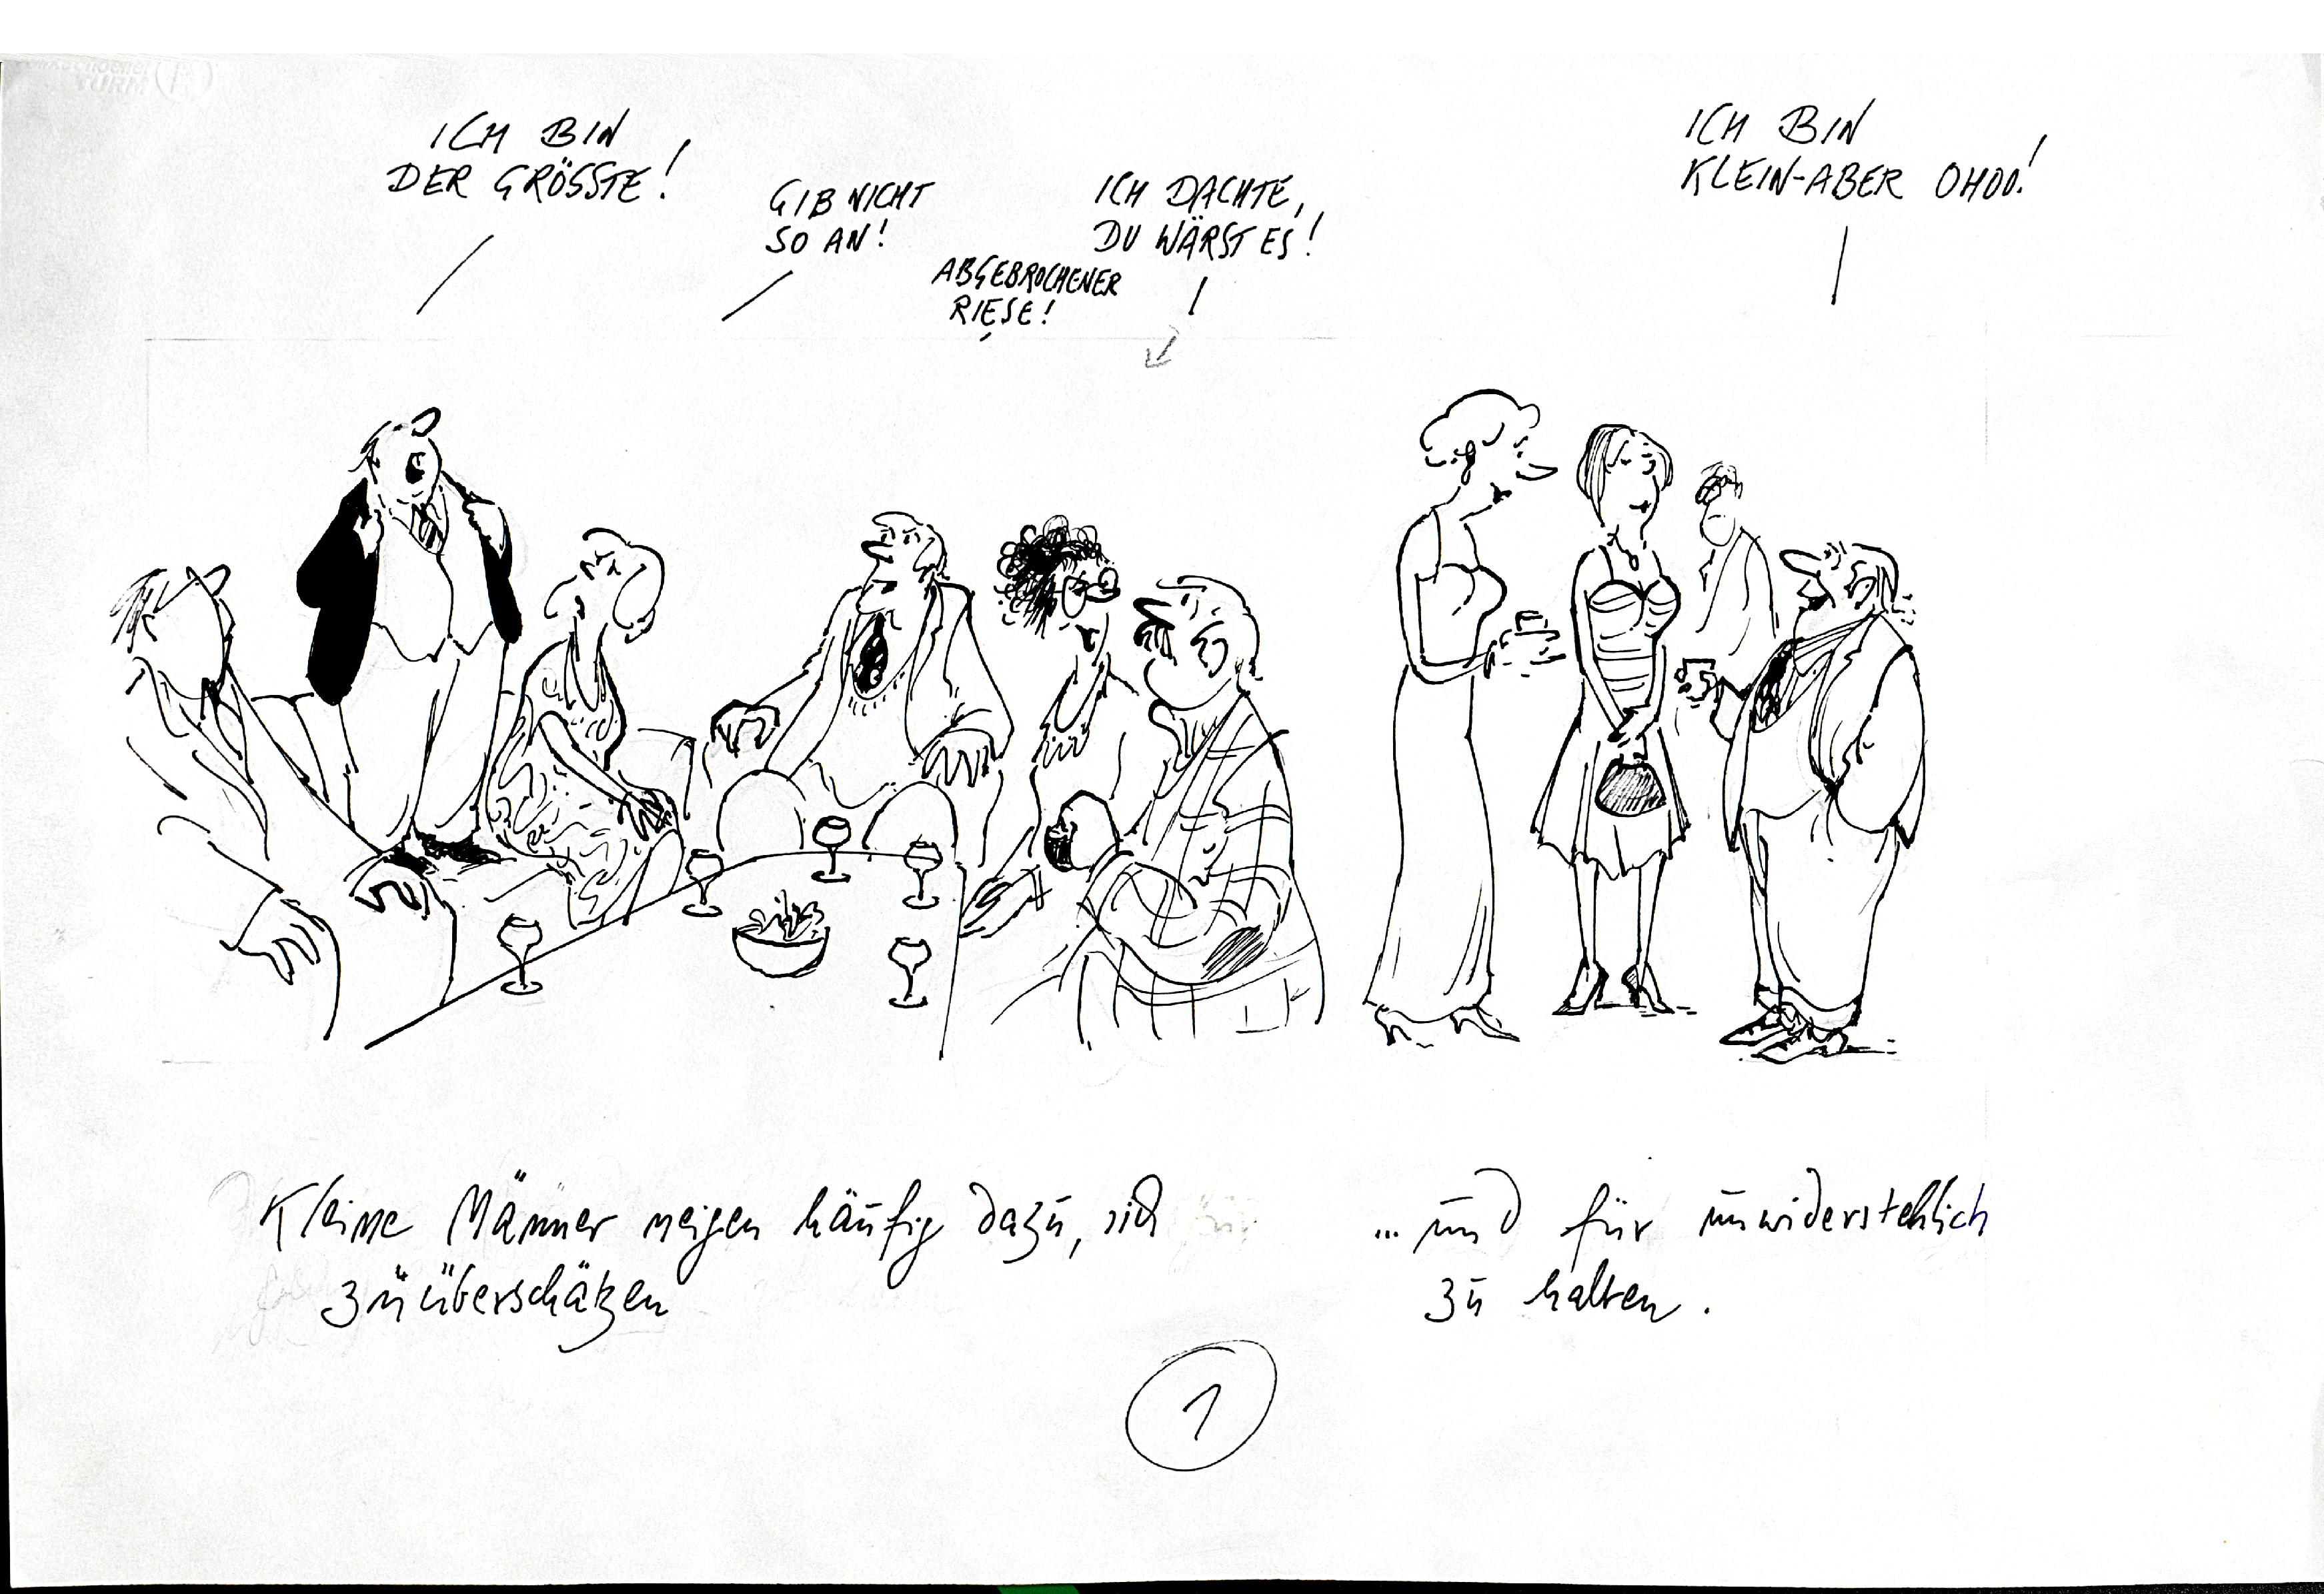 ICH BIN
DER GRÖSSTE!
GIB NICHT
SO AN!
ABGEBROCHENER
RIESE!
ICH DACHTE,
DU WÄRST ES!
ICH BIN
KLEIN-ABER OHOO!
Kleine Männer neigen häufig dazu, sich
zu überschätzen
... und für unwiderstehlich
zu halten.
1
TURM